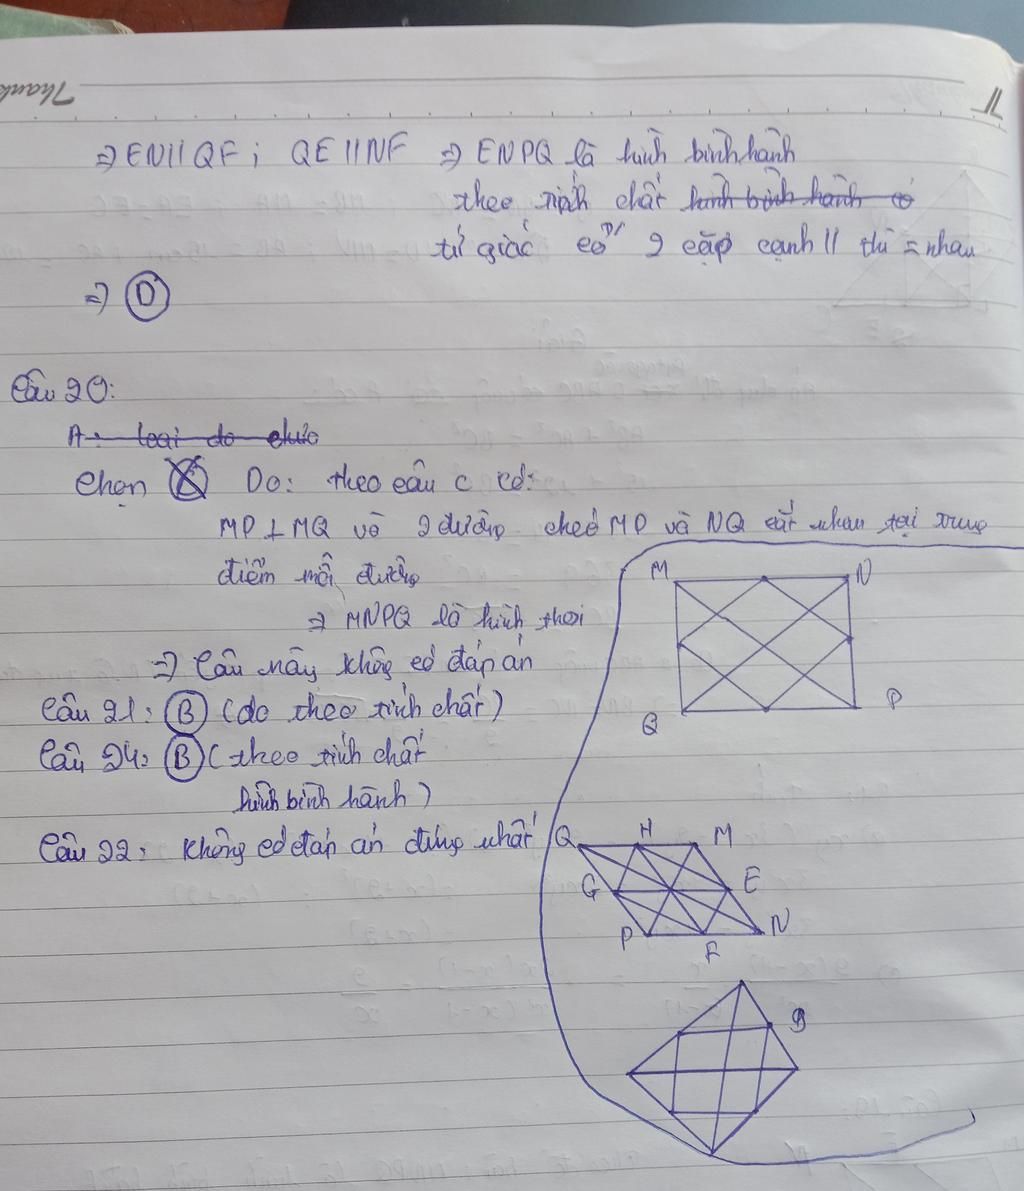 Thank
⇒ EN // QF ; QE // NF ⇒ ENPQ là hình bình hành
theo tính chất hình bình hành có
tứ giác có 2 cặp cạnh // thì = nhau
⇒ D
Câu 20:
A: loại do
Chọn Do: theo câu c có:
MP ⊥ MQ và 2 đường chéo MP và NQ cắt nhau tại trung
điểm mỗi đường
⇒ MNPQ là hình thoi
⇒ Câu này không có đáp án
Câu 21: B (do theo tính chất)
Câu 24: B (theo tính chất
hình bình hành)
Câu 22: không có đáp án đúng nhất
M N
Q P
Q H M
G E
P F N
B